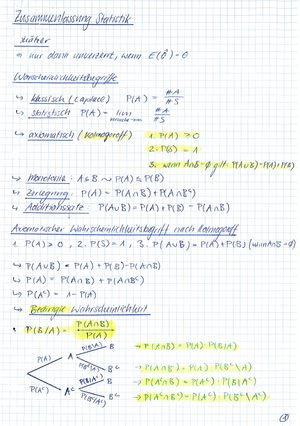 Zusammenfassung Statistik
Schätzer
nur dann unverzerrt, wenn E(θ̂) = θ
Wahrscheinlichkeitsbegriffe
↳ klassisch (Laplace) P(A) = #A / #S
↳ statistisch P(A) = lim #A / #S
↳ axiomatisch (Kolmogoroff) 1. P(A) ≥ 0
2. P(S) = 1
3. wenn A∩B=∅ gilt: P(A∪B)=P(A)+P(B)
↳ Monotonie: A⊆B ↝ P(A) ≤ P(B)
↳ Zerlegung: P(A) = P(A∩B) + P(A∩Bᶜ)
↳ Additionssatz: P(A∪B) = P(A) + P(B) - P(A∩B)
Axiomatischer Wahrscheinlichkeitsbegriff nach Kolmogoroff
1. P(A) ≥ 0, 2. P(S) = 1, 3. P(A∪B) = P(A) + P(B) (wenn A∩B = ∅)
↳ P(A∪B) = P(A) + P(B) - P(A∩B)
↳ P(A) = P(A∩B) + P(A∩Bᶜ)
↳ P(Aᶜ) = 1 - P(A)
↳ Bedingte Wahrscheinlichkeit
• P(B|A) = P(A∩B) / P(A)
P(A) A P(B|A) B → P(A∩B) = P(A) · P(B|A)
P(Bᶜ|A) Bᶜ → P(A∩Bᶜ) = P(A) · P(Bᶜ|A)
P(Aᶜ) Aᶜ P(B|Aᶜ) B → P(Aᶜ∩B) = P(Aᶜ) · P(B|Aᶜ)
P(Bᶜ|Aᶜ) Bᶜ → P(Aᶜ∩Bᶜ) = P(Aᶜ) · P(Bᶜ|Aᶜ)